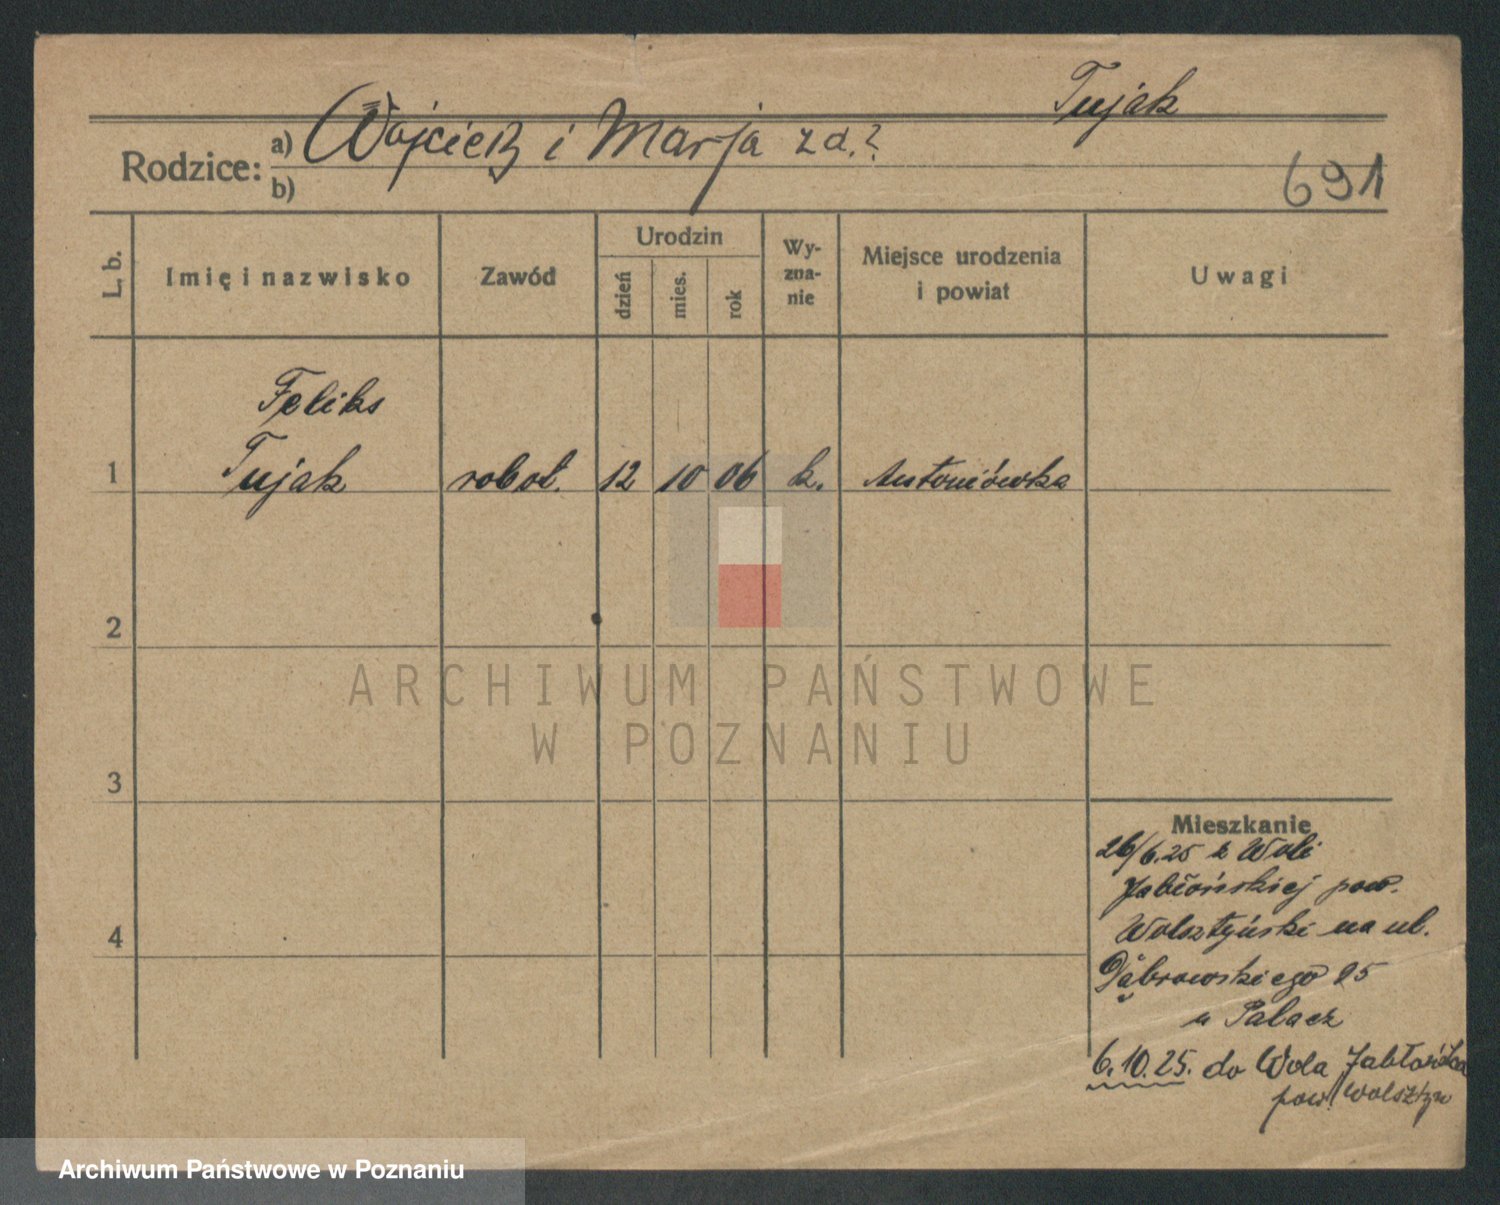 Tujak
Rodzice:
a) Wojciech i Marja z d.?
b)
691
L. b.
Imię i nazwisko
Zawód
Urodzin
dzień
mies.
rok
Wy-
zna-
nie
Miejsce urodzenia
i powiat
Uwagi
Feliks
1 Tujak robot. 12 10 06 k. Antoniówka
2
3
4
ARCHIWUM PAŃSTWOWE
W POZNANIU
Mieszkanie
26/6.25 z Woli
Jabłońskiej pow.
Wolsztyński na ul.
Dąbrowskiego 25
u Palacz
6.10.25. do Wola
pow. Wolsztyn
Archiwum Państwowe w Poznaniu